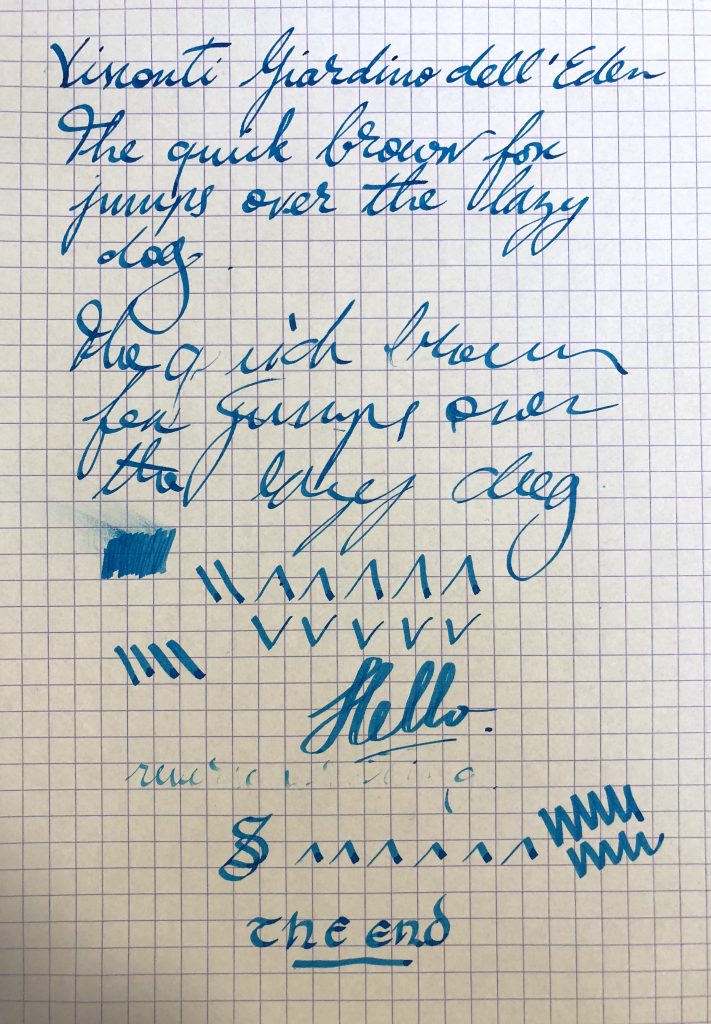 Visconti Giardino dell'Eden
The quick brown fox
jumps over the lazy
dog.
the quick brown
fox jumps over
the lazy dog
Hello.
the end